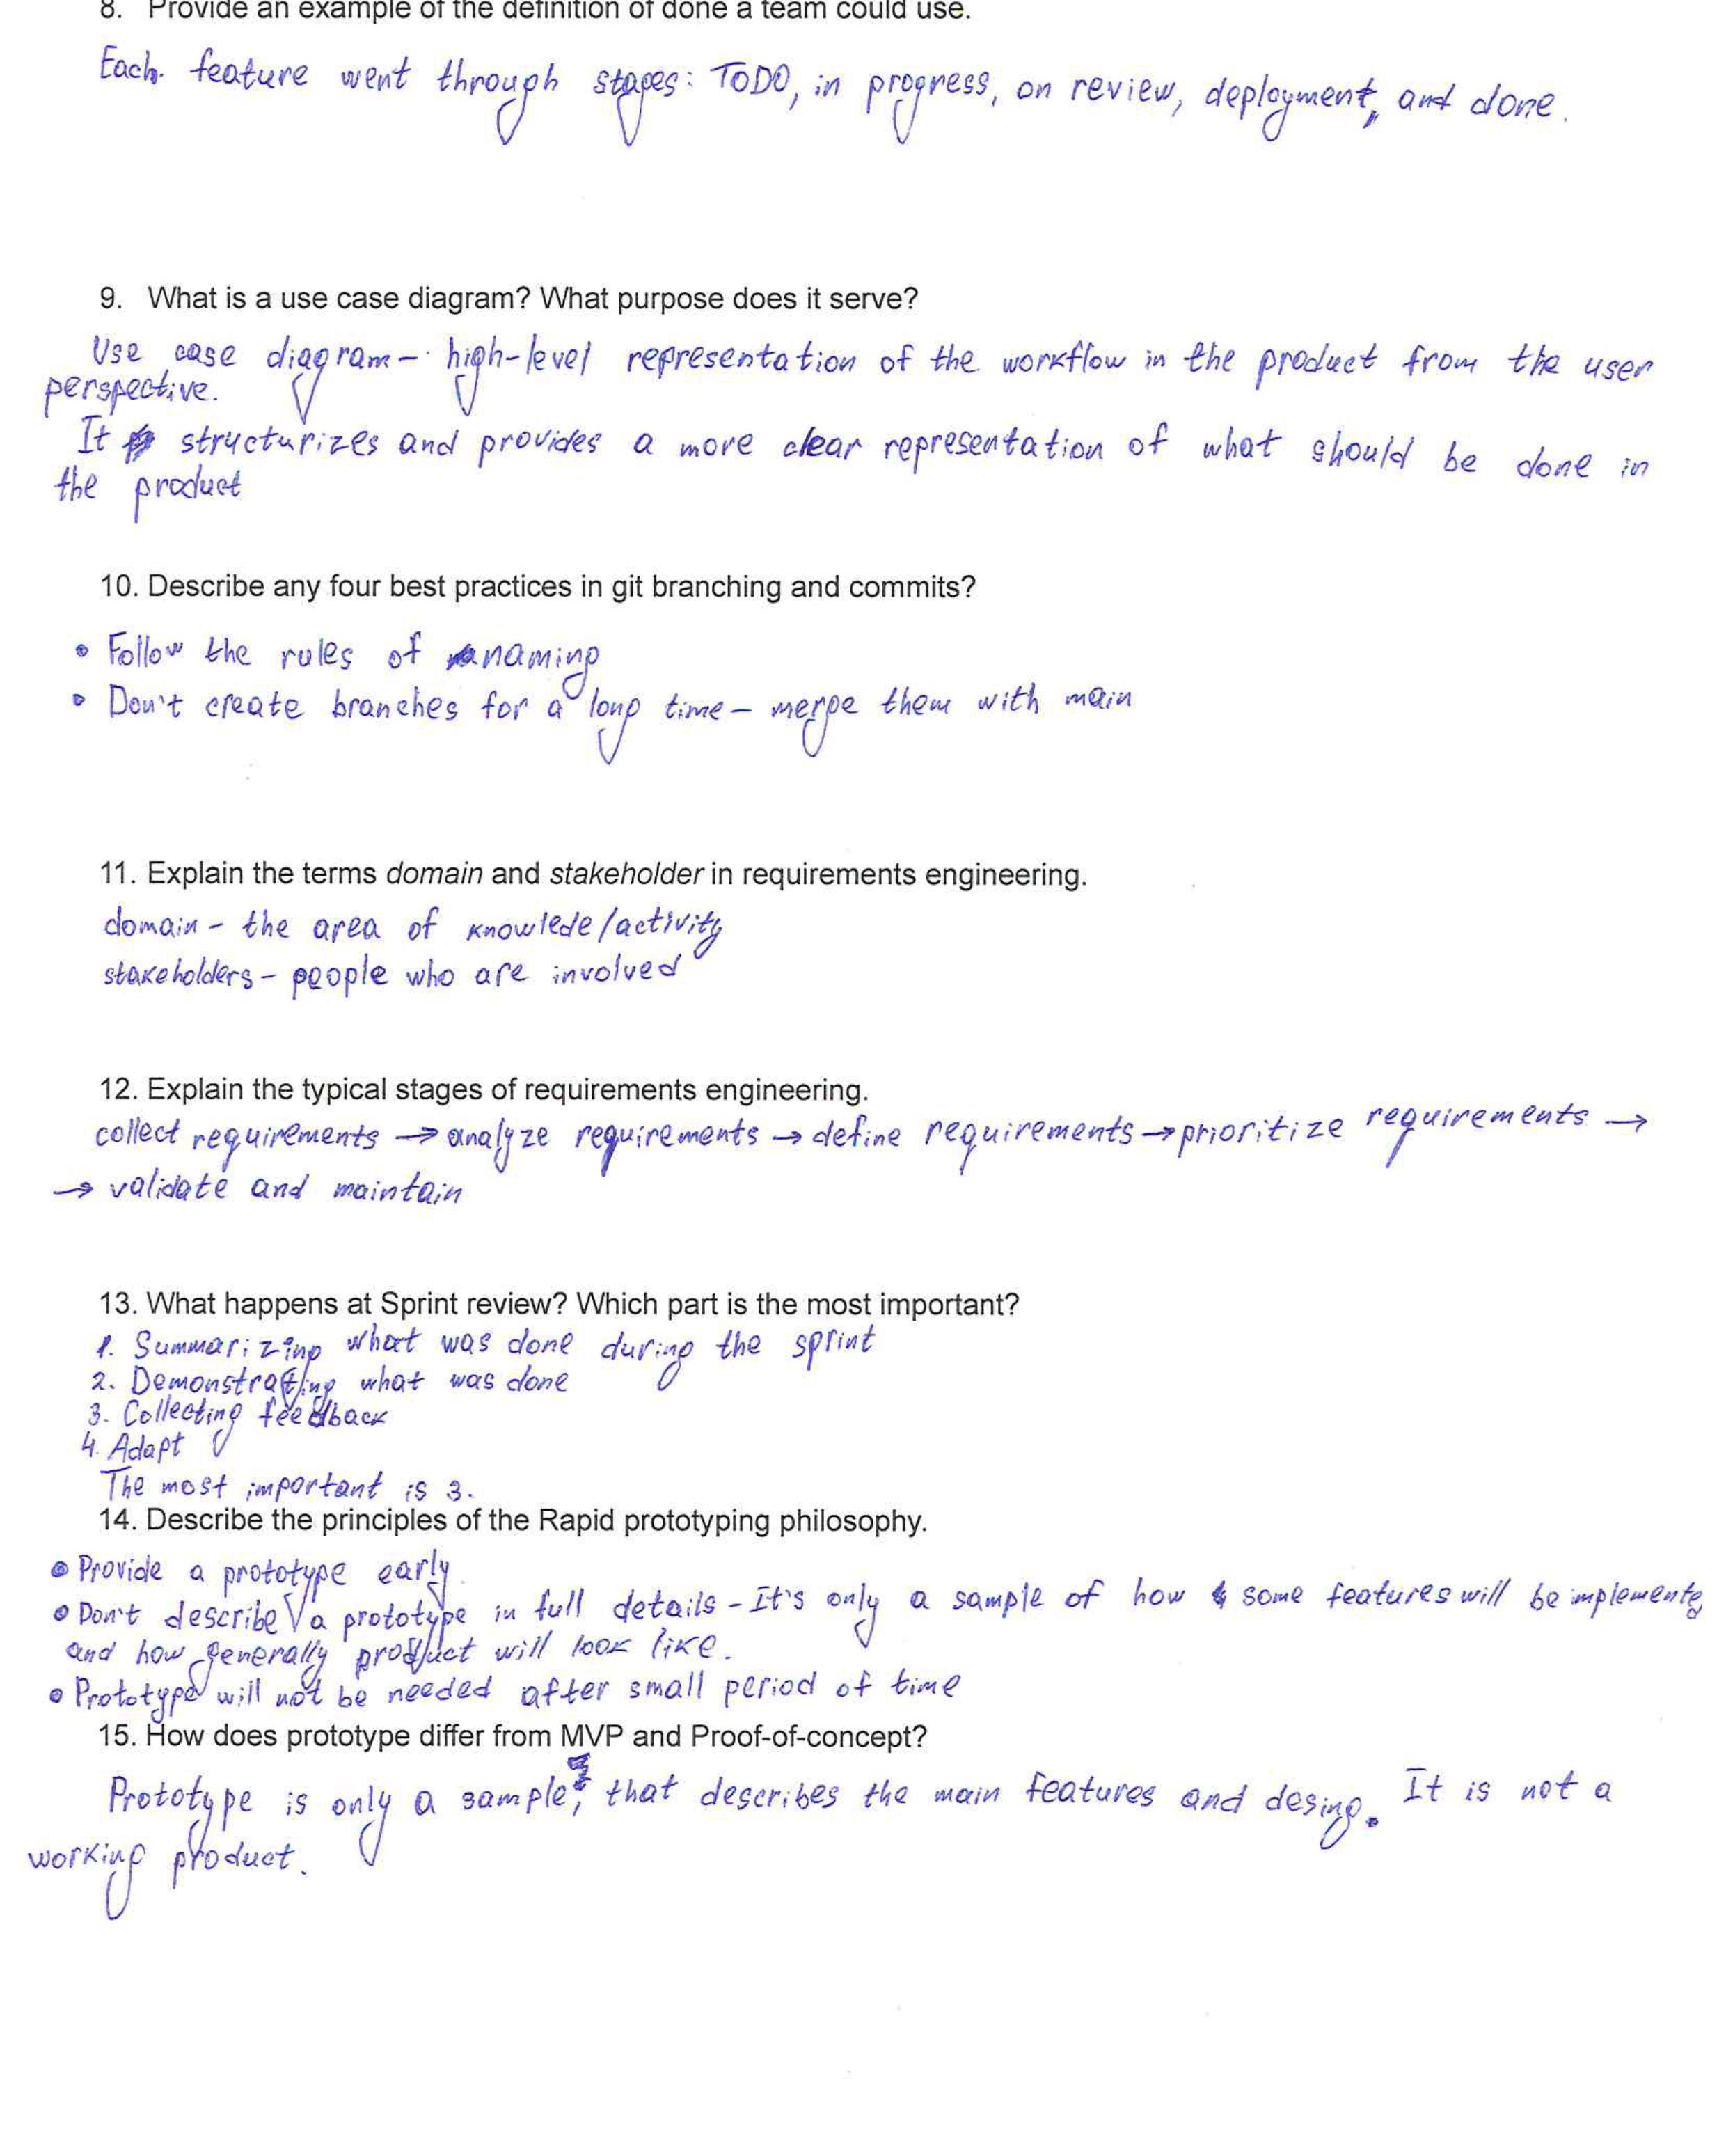 8. Provide an example of the definition of done a team could use.
Each feature went through stages: TODO, in progress, on review, deployment, and done.
9. What is a use case diagram? What purpose does it serve?
Use case diagram - high-level representation of the workflow in the product from the user
perspective.
It structurizes and provides a more clear representation of what should be done in
the product
10. Describe any four best practices in git branching and commits?
• Follow the rules of naming
• Don't create branches for a long time - merge them with main
11. Explain the terms domain and stakeholder in requirements engineering.
domain - the area of knowlede/activity
stakeholders - people who are involved
12. Explain the typical stages of requirements engineering.
collect requirements → analyze requirements → define requirements → prioritize requirements →
→ validate and maintain
13. What happens at Sprint review? Which part is the most important?
1. Summarizing what was done during the sprint
2. Demonstrating what was done
3. Collecting feedback
4. Adapt
The most important is 3.
14. Describe the principles of the Rapid prototyping philosophy.
• Provide a prototype early
• Don't describe a prototype in full details - It's only a sample of how some features will be implemente
and how generally product will look like.
• Prototype will not be needed after small period of time
15. How does prototype differ from MVP and Proof-of-concept?
Prototype is only a sample, that describes the main features and desing. It is not a
working product.